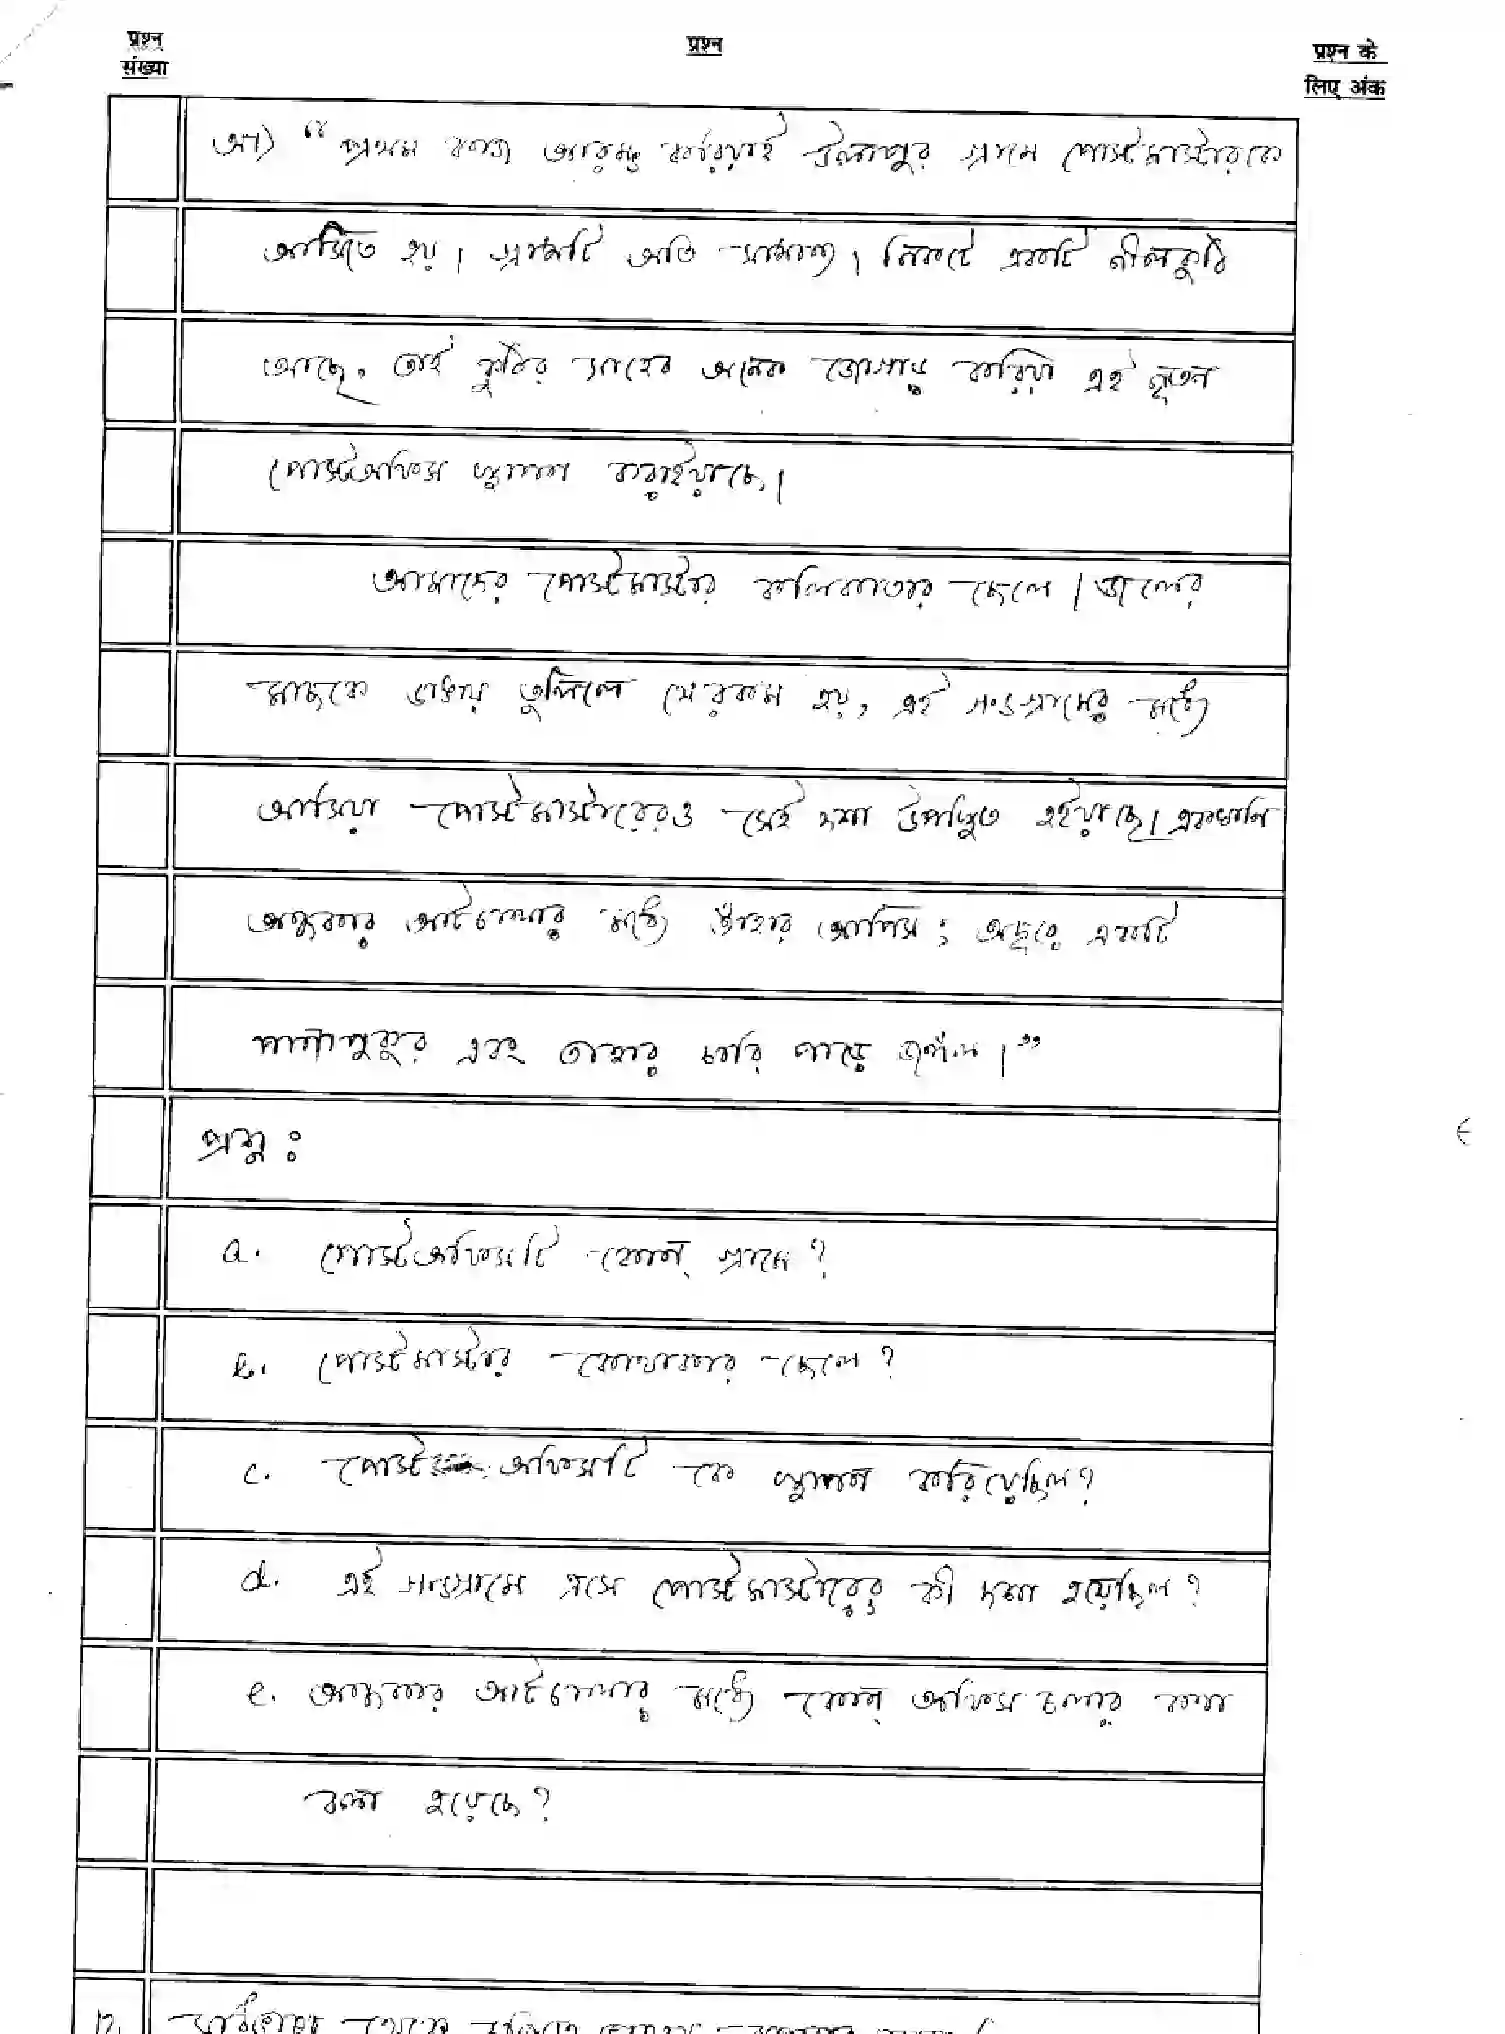 प्रश्न संख्या
प्रश्न
प्रश्न के लिए अंक
আ) “প্রথম কাজ আরম্ভ করিয়াই উলাপুর গ্রামে পোস্টমাস্টারকে
আসিতে হয়। গ্রামটি অতি সামান্য। নিকটে একটি নীলকুঠি
আছে, তাই কুঠির সাহেব অনেক জোগাড় করিয়া এই নূতন
পোস্টঅফিস স্থাপন করাইয়াছে।
আমাদের পোস্টমাস্টার কলিকাতার ছেলে। জলের
মাছকে ডাঙায় তুলিলে যেরকম হয়, এই গণ্ডগ্রামের মধ্যে
আসিয়া পোস্টমাস্টারেরও সেই দশা উপস্থিত হইয়াছে। একখানি
অন্ধকার আটচালার মধ্যে তাঁহার আপিস; অদূরে একটি
পানাপুকুর এবং তাহার চারি পাড়ে জঙ্গল।”
প্রশ্ন :
a. পোস্টঅফিসটি কোন্ গ্রামে?
b. পোস্টমাস্টার কোথাকার ছেলে?
c. পোস্ট অফিসটি কে স্থাপন করিয়েছিল?
d. এই গণ্ডগ্রামে এসে পোস্টমাস্টারের কী দশা হয়েছিল?
e. অন্ধকার আটচালার মধ্যে কোন্ অফিস চলার কথা
বলা হয়েছে?
12.